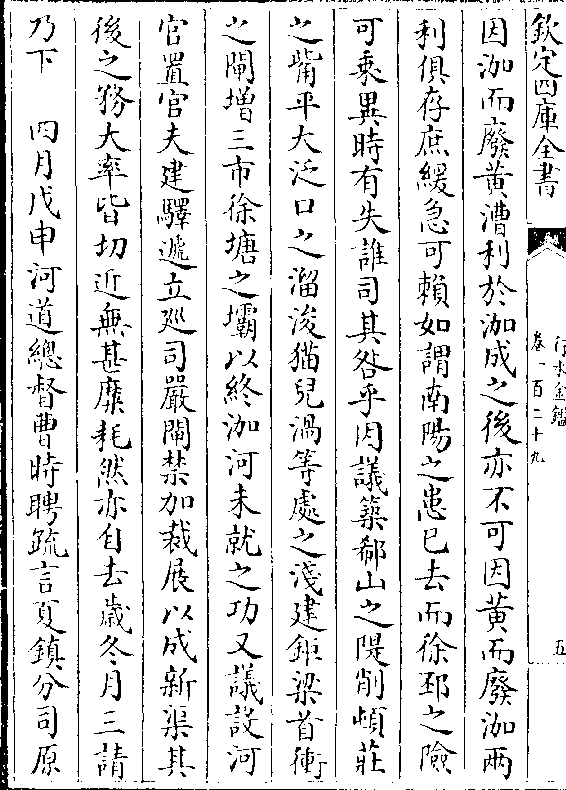 欽定四庫全書
行水金鑑
卷一百二十九
五
因泇而廢黄漕利於泇成之後亦不可因黄而廢泇兩
利俱存庶緩急可賴如謂南陽之患已去而徐邳之險
可乘異時有失誰司其咎乎因議築郗山之隄削頓莊
之嘴平大泛口之溜浚猫兒渦等處之淺建鉅梁首衝
之閘增三市徐塘之壩以終泇河未就之功又議設河
官置官夫建驛遞立廵司嚴閘禁加裁展以成新渠其
後之務大率皆切近無甚縻耗然亦自去歲冬月三請
乃下　四月戊申河道總督曹時聘疏言夏鎮分司原